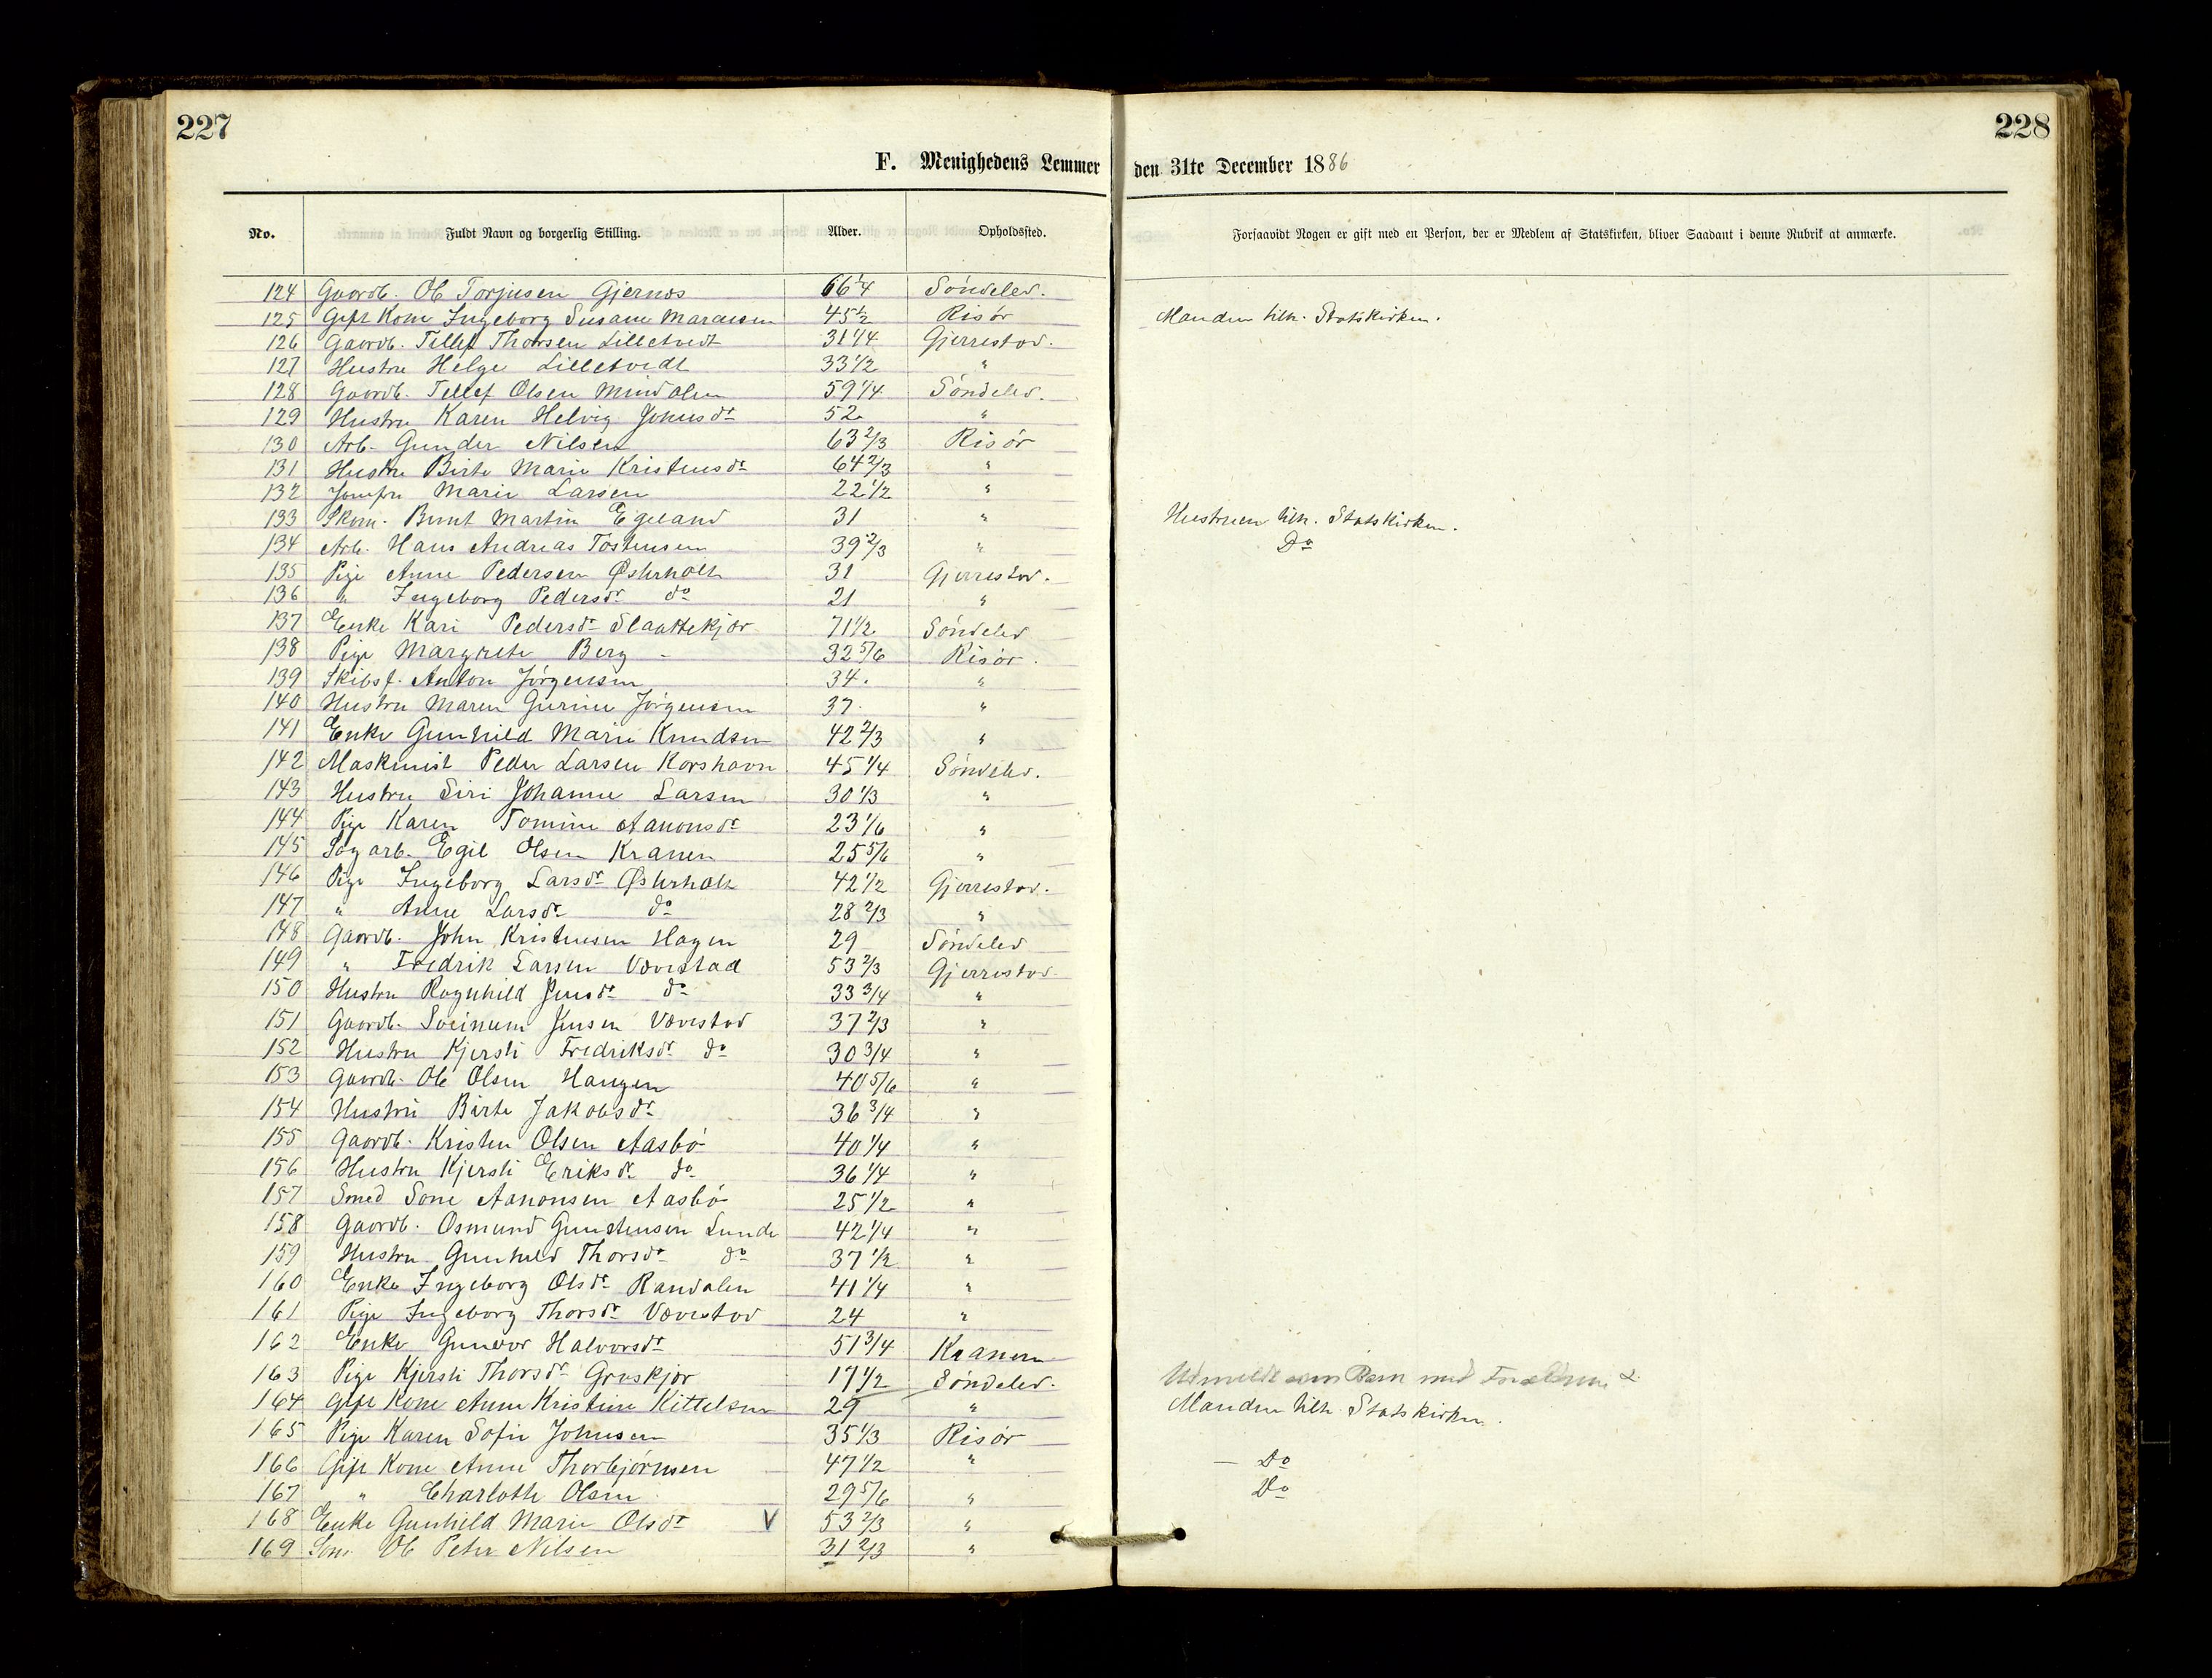 227
228
F. Menighedens Lemmer den 31te December 1886
No. Fuldt Navn og borgerlig Stilling. Alder. Opholdssted. Forsaavidt Nogen er gift med en Person, der er Medlem af Statskirken, bliver Saadant i denne Rubrik at anmærke.
124 Gaardb. Ole Torjusen Gjernæs 66 1/4 Söndeled.
125 Gift Kone Ingeborg Susane Marcussen 45 1/2 Risör Manden tilh. Statskirken.
126 Gaardb. Tellef Thorsen Lilletvedt 31 1/4 Gjerrestad.
127 Hustru Helge Lilletvedt 33 1/2 "
128 Gaardb. Tellef Olsen Mindalen 59 1/4 Söndeled.
129 Hustru Karen Helvig Johnsdr 52 "
130 Arb. Gunder Nilsen 63 2/3 Risör
131 Hustru Birte Marie Kristensdr 64 2/3 "
132 Jomfru Marie Larsen 22 1/2 "
133 Skom. Bernt Martin Egeland 31 " Hustruen tilh. Statskirken.
134 Arb. Hans Andreas Tostensen 39 2/3 " Do
135 Pige Anne Pedersen Østerholt 31 Gjerrestad.
136 " Ingeborg Pedersdr do 21 "
137 Enke Kari Pedersdr Slaattekjær 71 1/2 Söndeled
138 Pige Margrete Berg 32 5/6 Risör.
139 Skibsf. Anton Jörgensen 34. "
140 Hustru Maren Gurine Jörgensen 37. "
141 Enke Gunhild Marie Knudsen 42 2/3 "
142 Maskinist Peder Larsen Korshavn 45 1/4 Söndeled.
143 Hustru Siri Johanne Larsen 30 1/3 "
144 Pige Karen Tomine Aanonsdr 23 1/6 "
145 Sagarb. Egil Olsen Kranen 25 5/6 "
146 Pige Ingeborg Larsdr Østerholt 42 1/2 Gjerrestad.
147 " Anne Larsdr do 28 2/3 "
148 Gaardb. John Kristensen Hagen 29 Söndeled
149 " Fredrik Larsen Vævestad 53 2/3 Gjerrestad.
150 Hustru Ragnhild Jensdr do 33 3/4 "
151 Gaardb. Jensen Vævestad 37 2/3 "
152 Hustru Kjersti Fredriksdr do 30 3/4 "
153 Gaardb. Ole Olsen Haugen 40 5/6 "
154 Hustru Birte Jakobsdr 36 3/4 "
155 Gaardb. Kristen Olsen Aasbö 40 1/4 "
156 Hustru Kjersti Eriksdr do 36 1/4 "
157 Smed Sone Aanonsen Aasbö 25 1/2 "
158 Gaardb. Osmund Gunstensen Lunde 42 1/4 "
159 Hustru Gunhild Thorsdr do 37 1/2 "
160 Enke Ingeborg Olsdr Randalen 41 1/4 "
161 Pige Ingeborg Thorsdr Vævestad 24 "
162 Enke Gunvor Halvorsdr 51 3/4 Kranen
163 Pige Kjersti Thorsdr Gruskjær 17 1/2 Söndeled. Udmeldt som Barn med Forældrene
164 Gift Kone Anne Kristine Kittelsen 29 " Manden tilh. Statskirken.
165 Pige Karen Sofie Johnsen 35 1/3 Risör
166 Gift Kone Anne Thorbjörnsen 47 1/2 " — Do
167 " Charlotte Olsen 29 5/6 " Do
168 Enke Gunhild Marie Olsdr V 53 2/3 "
169 Söm. Ole Peter Nilsen 31 2/3 "